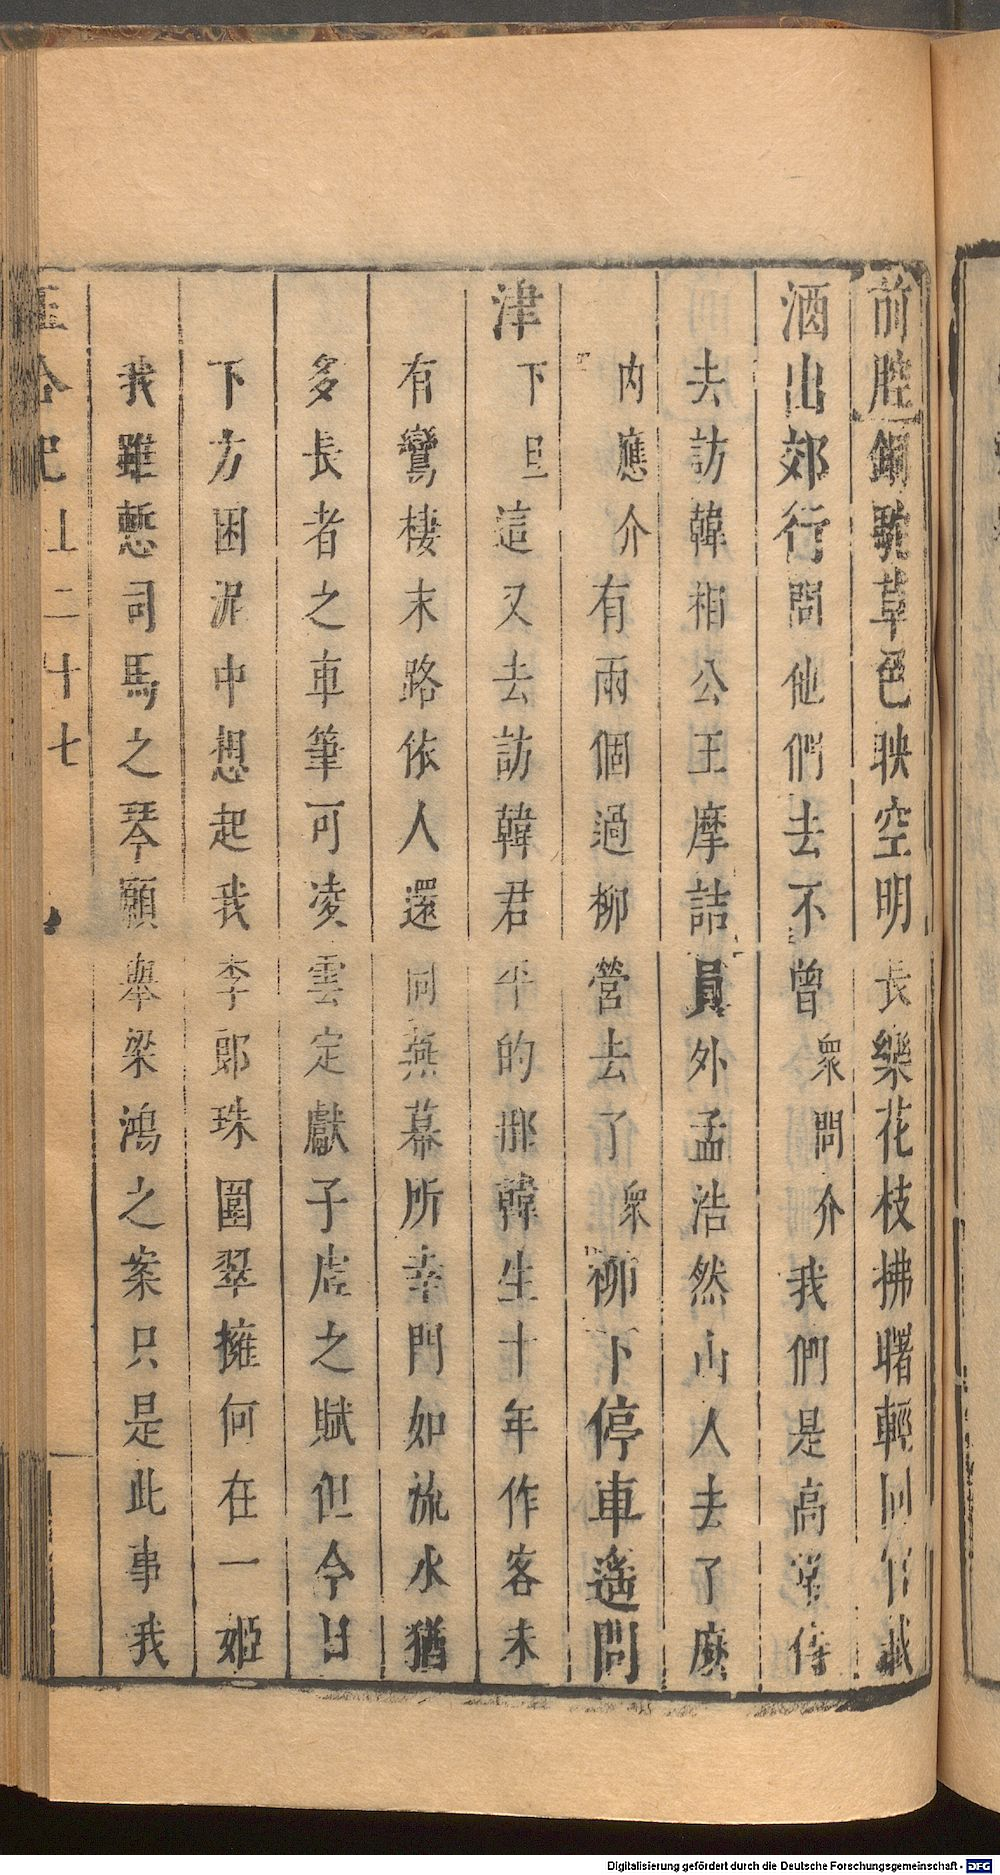 前腔 銅駝草色映空明長樂花枝拂曙輕同官載
酒出郊行問他們去不曾衆問介我們是高常侍
去訪韓相公王摩詰員外孟浩然山人去了麽
内應介有兩個過柳營去了衆柳下停車遙問
津
下旦這又去訪韓君平的那韓生十年作客未
有鸞棲末路依人還同燕幕所幸門如流水猶
多長者之車筆可凌雲定獻子虛之賦但今日
下方困泥中想起我李郎珠圍翠擁何在一姬
我雖慙司馬之琴願舉梁鴻之案只是此事我
玉合記 上 二十七
Digitalisierung gefördert durch die Deutsche Forschungsgemeinschaft - DFG